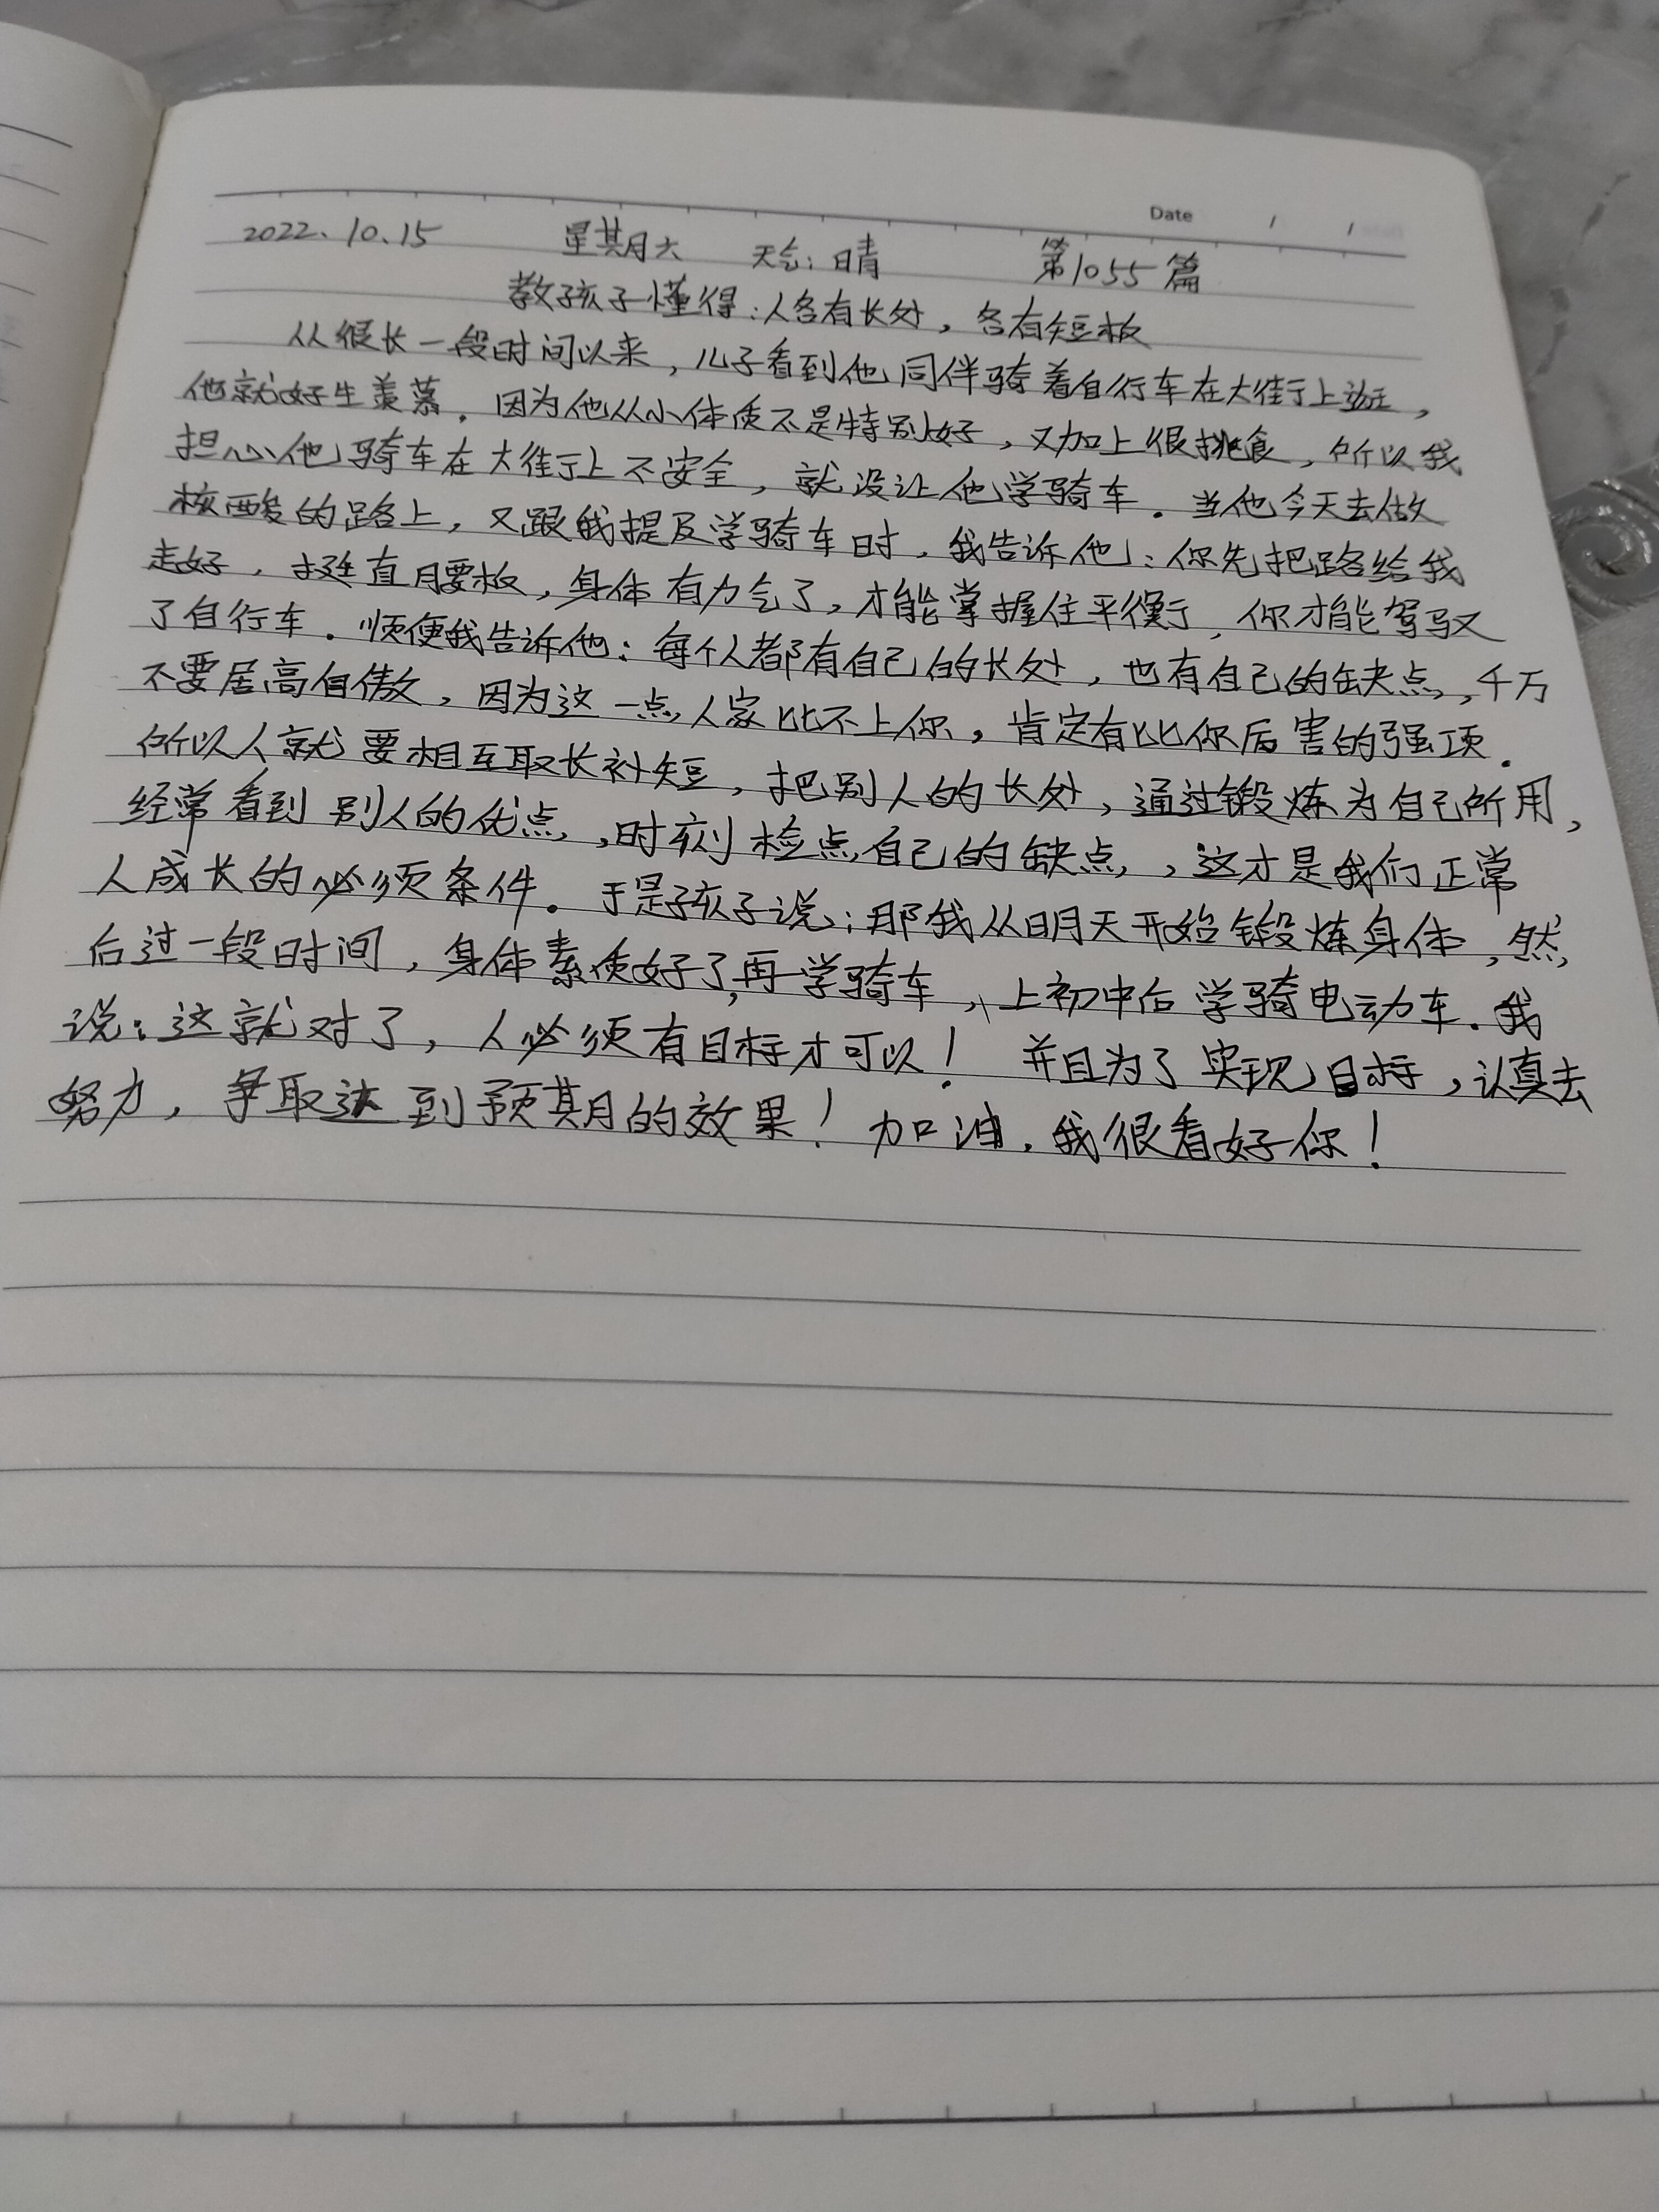 Date / /
2022.10.15 星期六 天气:晴 第1055篇
教孩子懂得:人各有长处,各有短板
从很长一段时间以来,儿子看到他同伴骑着自行车在大街上逛,
他就好生羡慕。因为他从小体质不是特别好,又加上很挑食,所以我
担心他骑车在大街上不安全,就没让他学骑车。当他今天去做
核酸的路上,又跟我提及学骑车时,我告诉他:你先把路给我
走好,挺直腰板,身体有力气了,才能掌握住平衡,你才能驾驭
了自行车。顺便我告诉他:每个人都有自己的长处,也有自己的缺点,千万
不要居高自傲,因为这一点人家比不上你,肯定有比你厉害的强项。
所以人就要相互取长补短,把别人的长处,通过锻炼为自己所用,
经常看到别人的优点,时刻检点自己的缺点,这才是我们正常
人成长的必须条件。于是孩子说:那我从明天开始锻炼身体,然
后过一段时间,身体素质好了,再学骑车,上初中后学骑电动车。我
说:这就对了,人必须有目标才可以!并且为了实现目标,认真去
努力,争取达到预期的效果!加油,我很看好你!